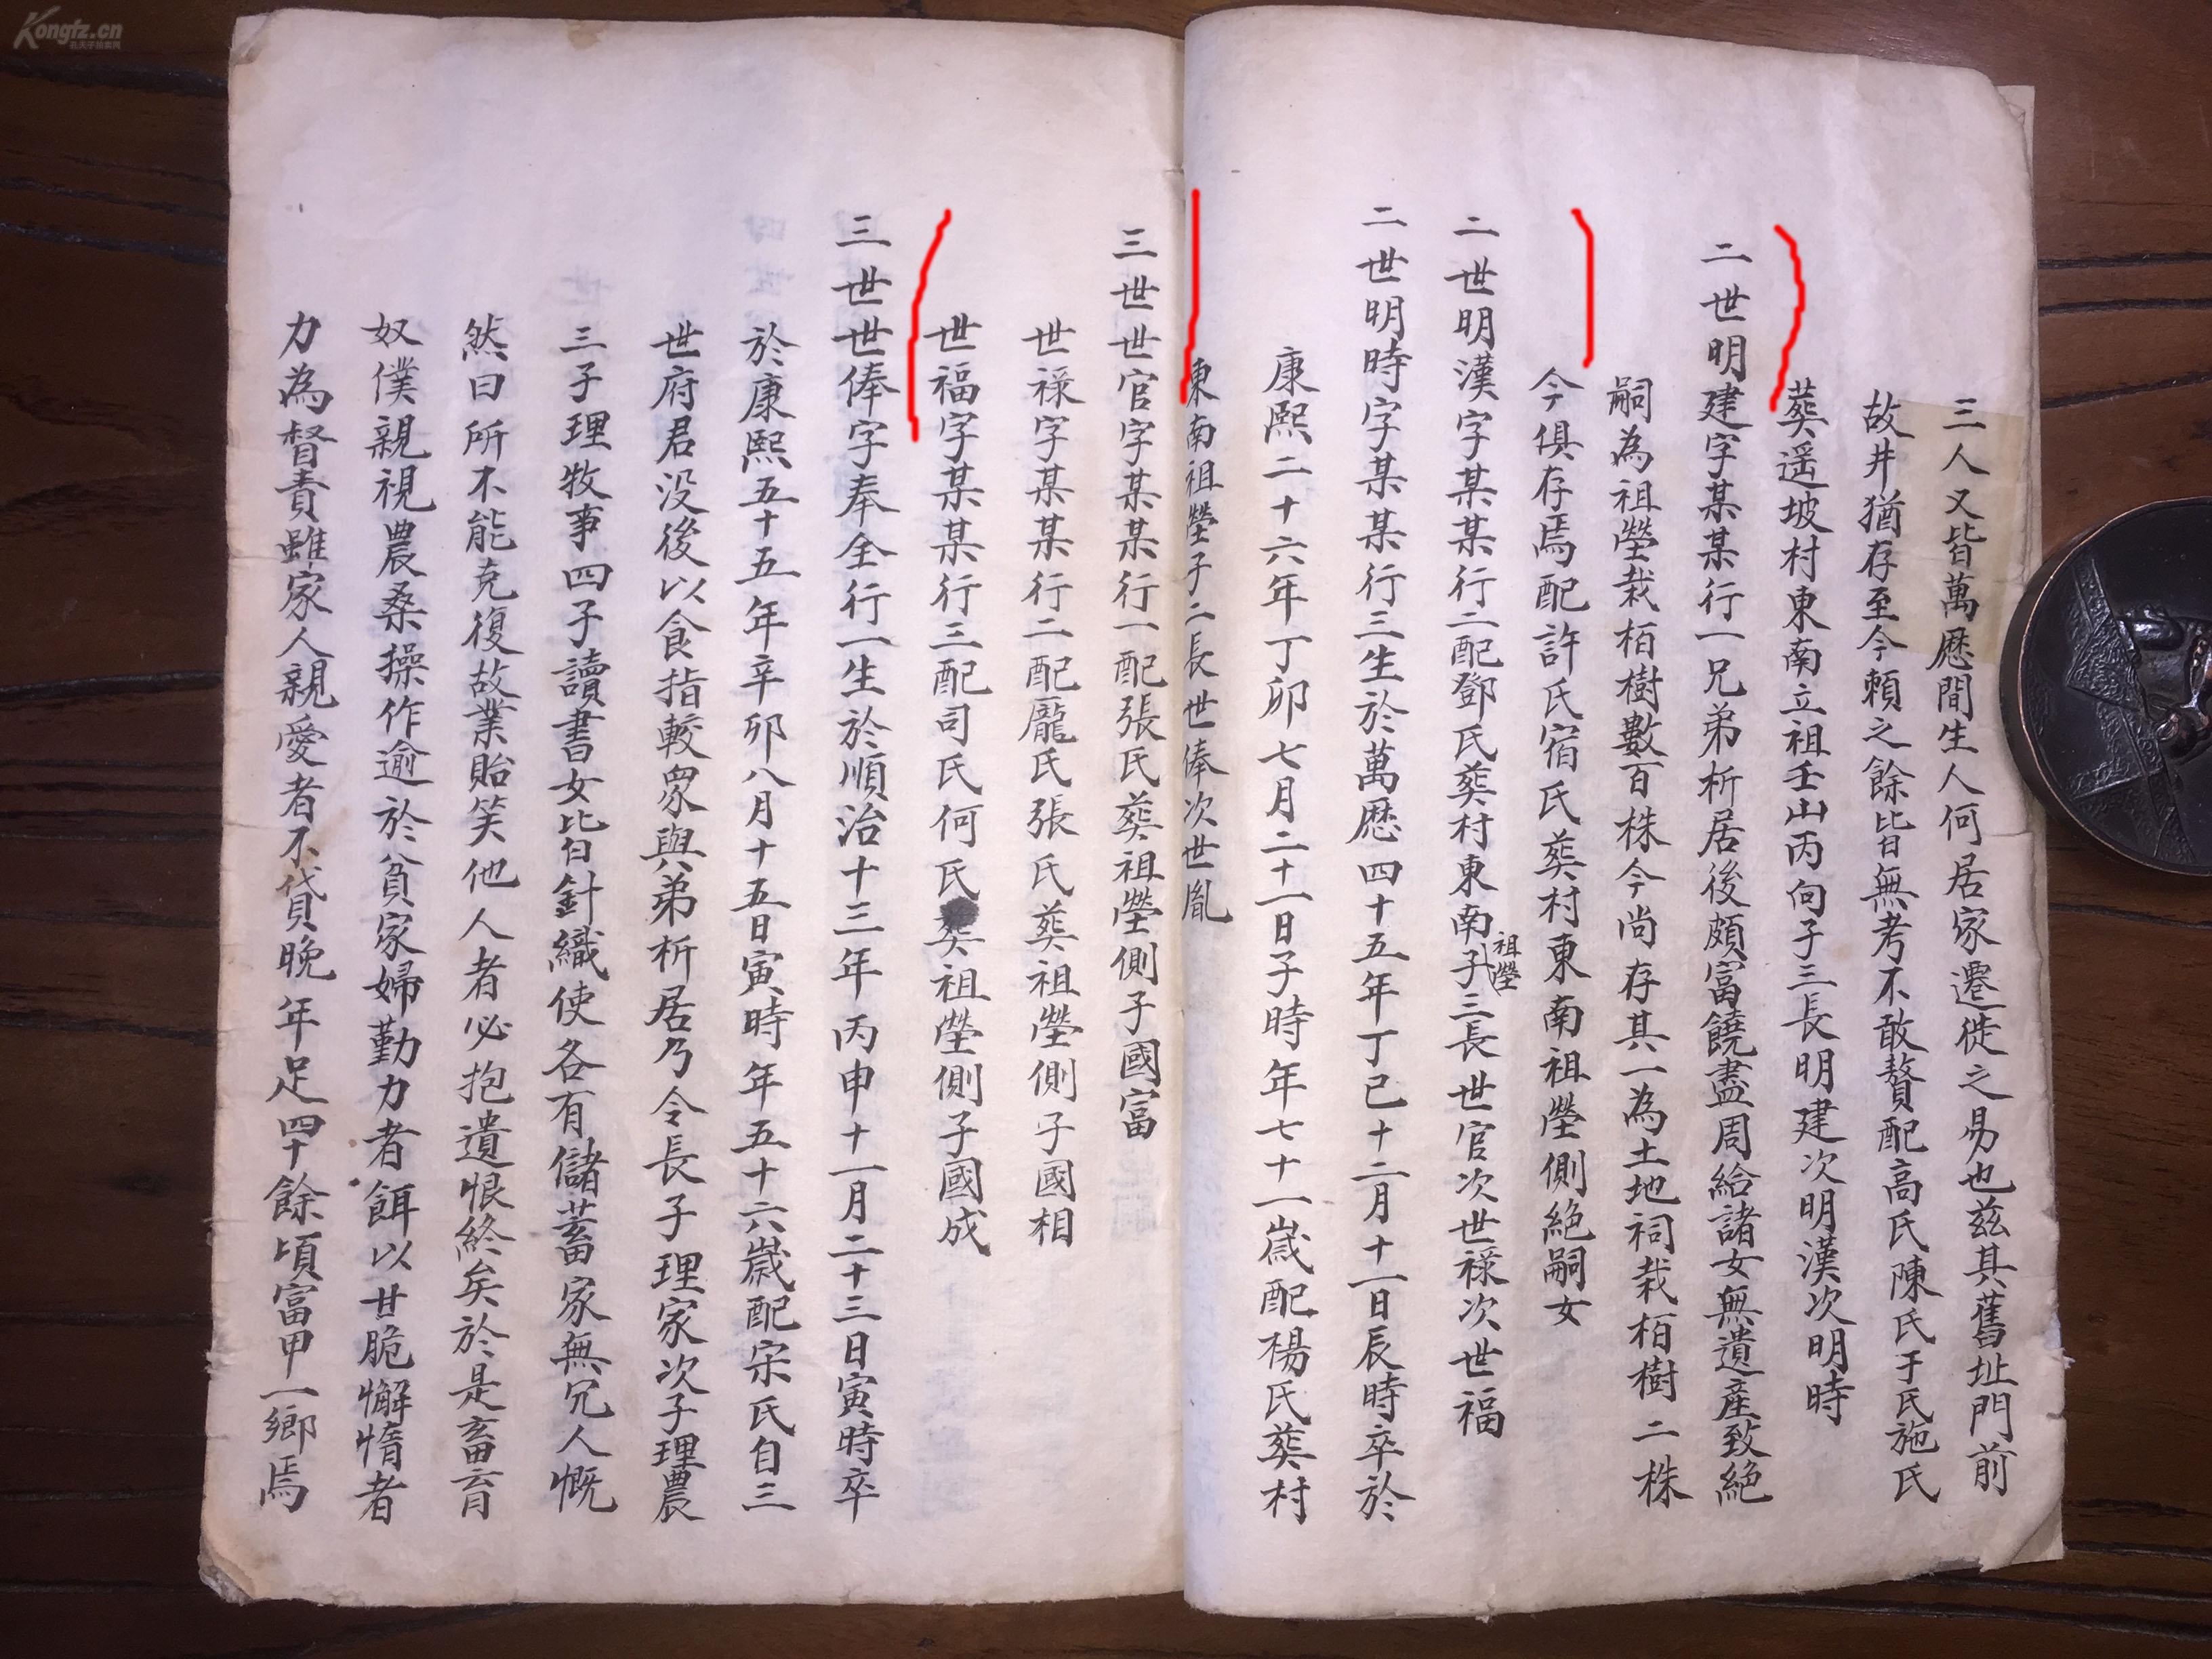 三人又皆萬厯間生人何居家遷徙之易也茲其舊址門前
故井猶存至今賴之餘皆無考不敢贅配高氏陳氏于氏施氏
葬遥坡村東南立祖壬山丙向子三長明建次明漢次明時
二世明建字某某行一兄弟析居後頗富饒盡周給諸女無遺産致絶
嗣為祖塋栽柏樹數百株今尚存其一為土地祠栽柏樹二株
今俱存焉配許氏宿氏葬村東南祖塋側絶嗣女
二世明漢字某某行二配鄧氏葬村東南祖塋子三長世官次世禄次世福
二世明時字某某行三生於萬厯四十五年丁巳十二月十一日辰時卒於
康熙二十六年丁卯七月二十一日子時年七十一歲配楊氏葬村
東南祖塋子二長世俸次世胤
三世世官字某某行一配張氏葬祖塋側子國富
世禄字某某行二配龐氏張氏葬祖塋側子國相
世福字某某行三配司氏何氏葬祖塋側子國成
三世世俸字奉全行一生於順治十三年丙申十一月二十三日寅時卒
於康熙五十五年辛卯八月十五日寅時年五十六歲配宋氏自三
世府君没後以食指較衆與弟析居乃令長子理家次子理農
三子理牧事四子讀書女皆針織使各有儲蓄家無冗人慨
然曰所不能克復故業貽笑他人者必抱遺恨終矣於是畜育
奴僕親視農桑操作逾於貧家婦勤力者餌以甘脆懈惰者
力為督責雖家人親愛者不貸晚年足四十餘頃富甲一鄉焉
Kongfz.cn
孔夫子拍卖网